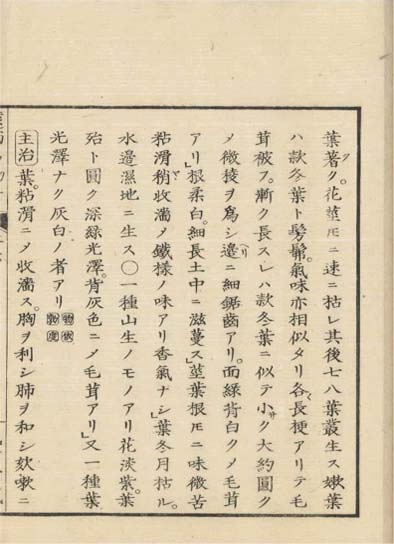 葉著ク。花莖𪜈ニ速ニ枯レ其後七八葉叢生ス嫩葉
ハ款冬葉ト髣髴。氣味亦相似タリ各長梗アリテ毛
茸被フ。漸ク長スレハ款冬葉ニ似テ小サク大約圓ク
メ微稜ヲ爲シ邉ヘリニ細鋸齒アリ。面緑背白クメ毛茸
アリ」根柔白。細長土中ニ滋蔓ス」莖葉根𪜈ニ味微苦
粘滑稍收濇メ鐵様ノ味アリ香氣ナシ」葉冬月枯ル。
水邉濕地ニ生ス〇一種山生ノモノアリ花淡紫葉
殆ト圓ク深緑光澤。背灰色ニメ毛茸アリ」又一種葉
光澤ナク灰白ノ者アリ
主治 葉。粘滑ニメ收濇ス。胸ヲ利シ肺ヲ和シ欬嗽ニ